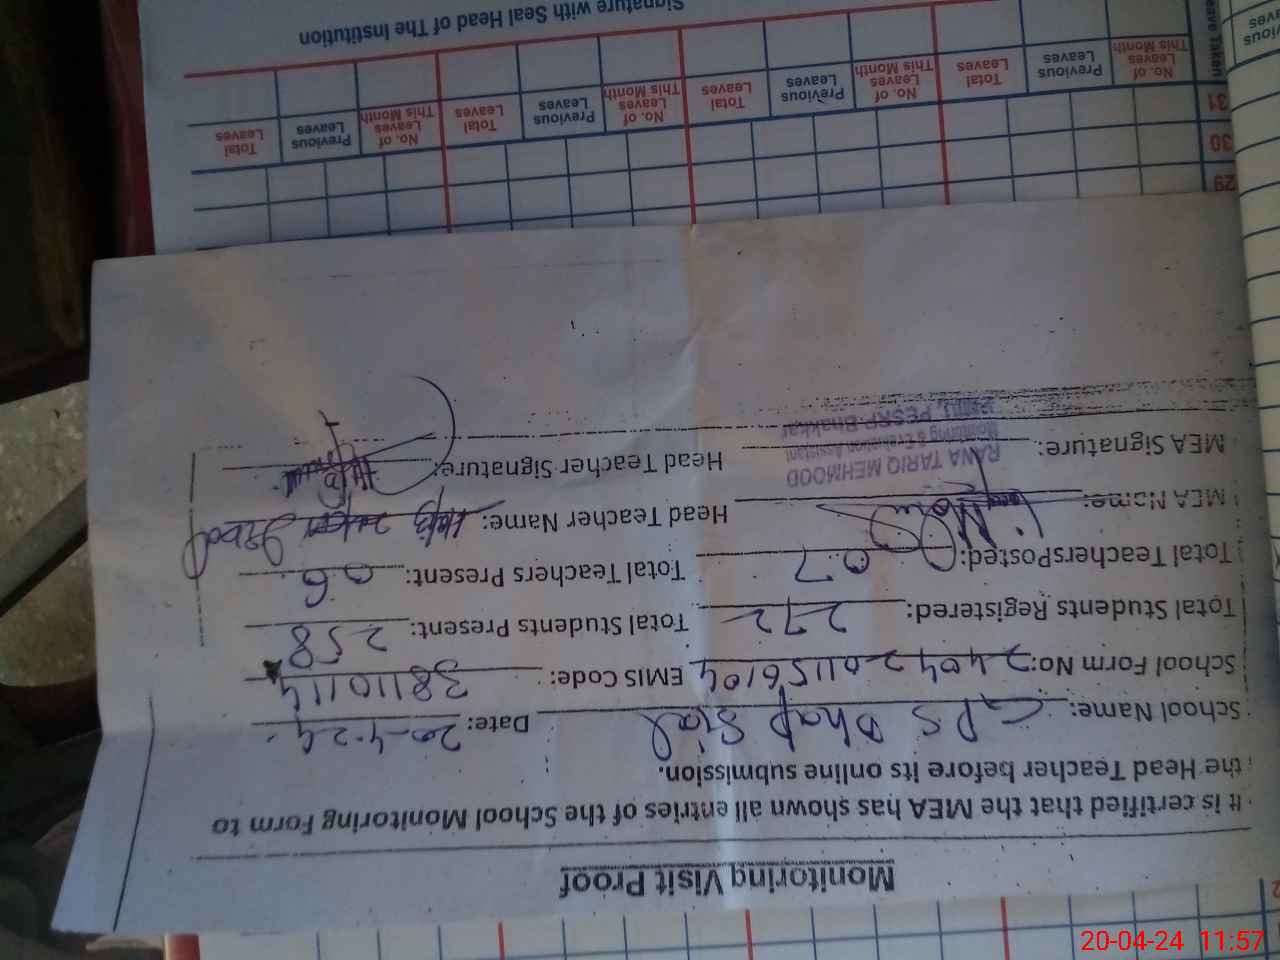 Monitoring Visit Proof
It is certified that the MEA has shown all entries of the School Monitoring Form to
the Head Teacher before its online submission.
School Name: GPS Dhap Sial Date: 20-4-24
School Form No: 2404201156104 EMIS Code: 38110114
Total Students Registered: 272 Total Students Present: 258
Total TeachersPosted: 07 Total Teachers Present: 06
MEA Name: Head Teacher Name:
MEA Signature: Head Teacher Signature:
RANA TARIQ MEHMOOD
Monitoring & Evaluation Assistant
PESRP Bhakkar
29
30
31
No. of Leaves This Month Previous Leaves Total Leaves No. of Leaves This Month Previous Leaves Total Leaves No. of Leaves This Month Previous Leaves Total Leaves No. of Leaves This Month Previous Leaves Total Leaves
Signature with Seal Head of The Institution
20-04-24 11:57